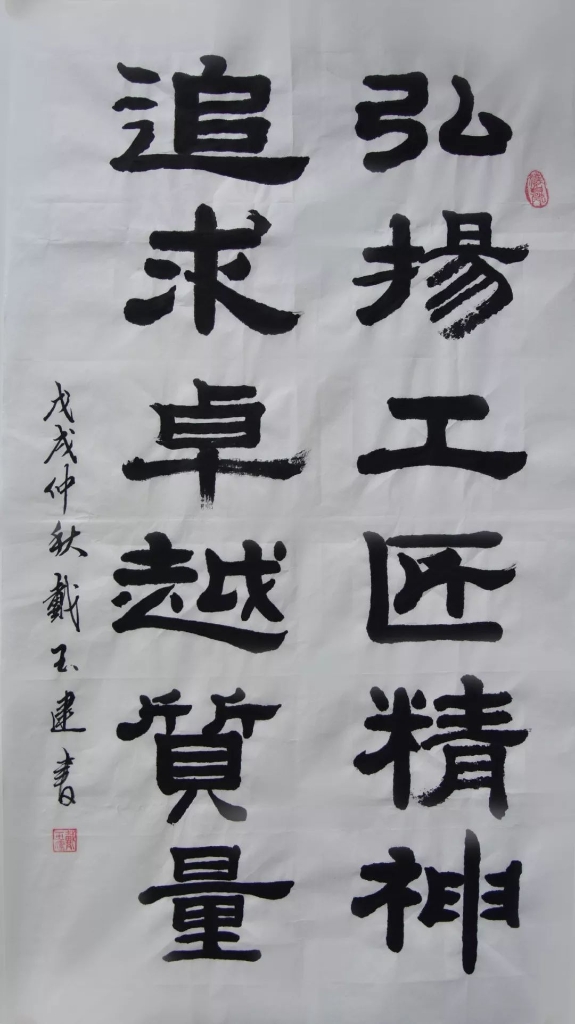 弘揚工匠精神
追求卓越質量
戊戌仲秋戴玉建書